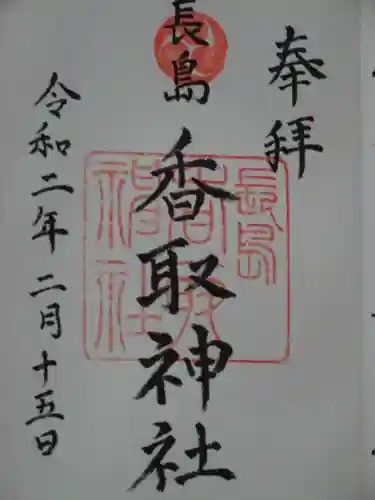 奉拝
長島
香取神社
長島
香取
神社
令和二年二月十五日